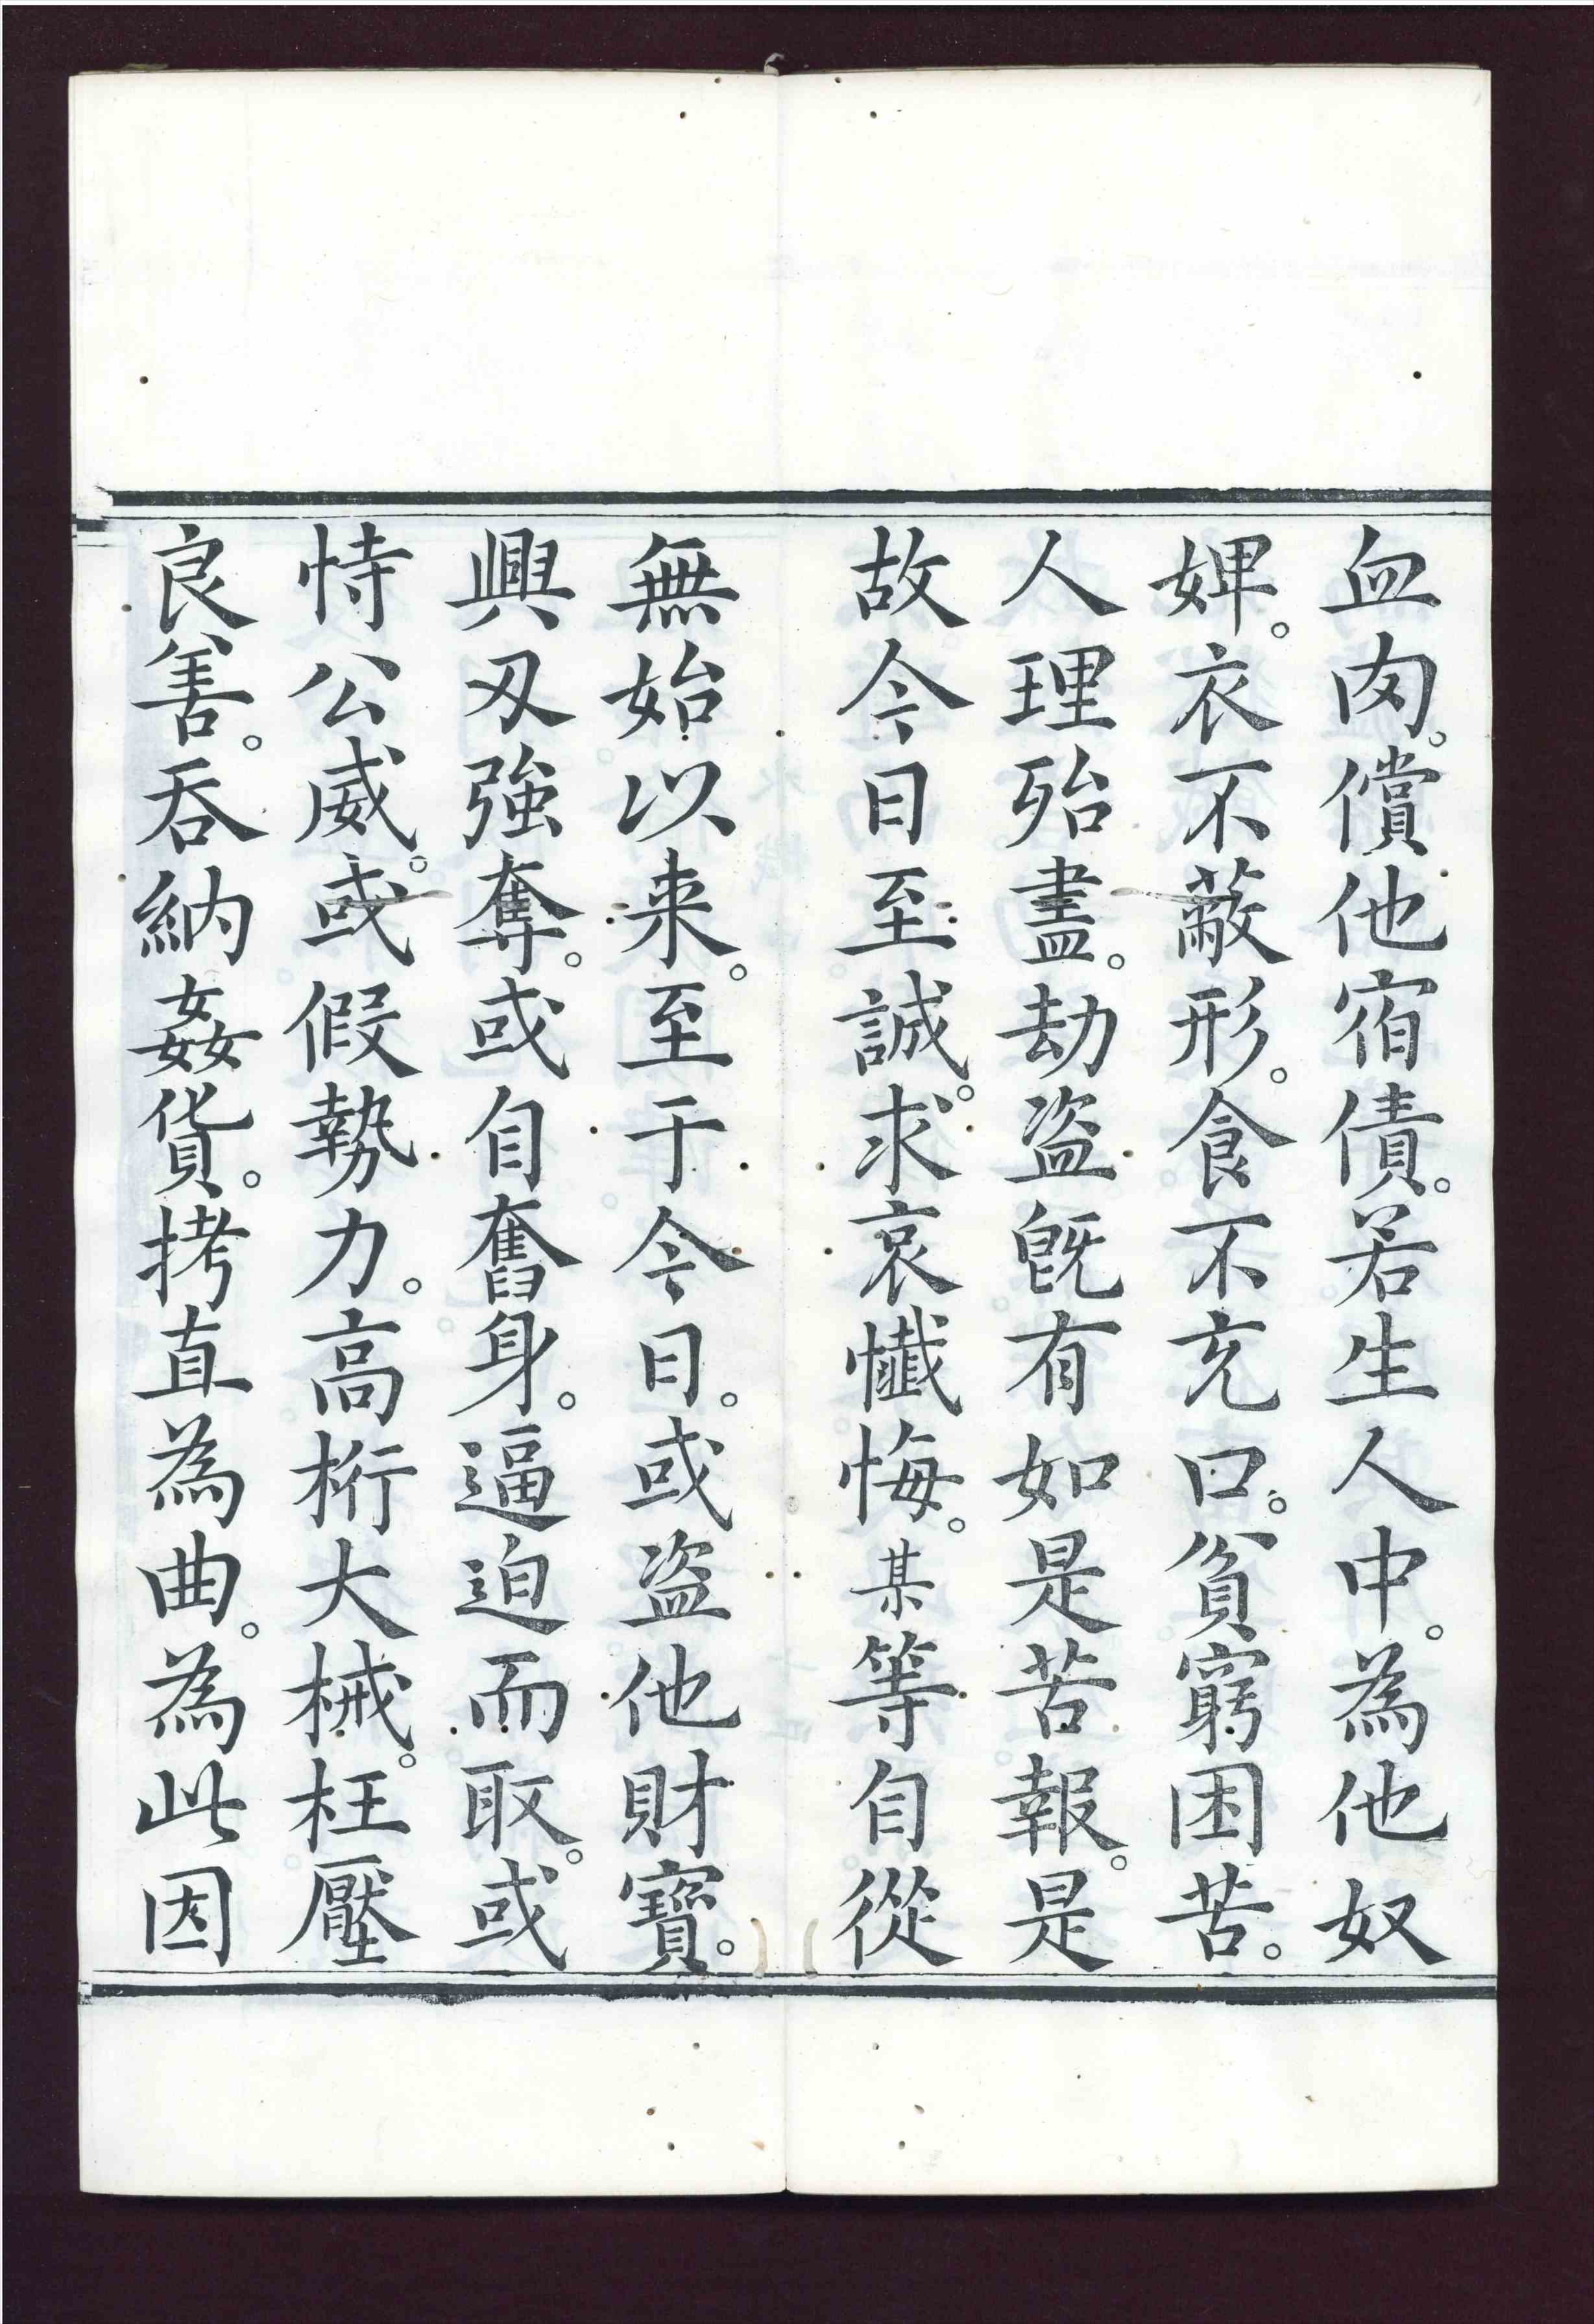 血肉。償他宿債。若生人中。為他奴
婢。衣不蔽形。食不充口。貧窮困苦。
人理殆盡。劫盜既有如是苦報。是
故今日至誠。求哀懺悔。某等自從
無始以来。至于今日。或盜他財寶。
興刃強奪。或自奮身。逼迫而取。或
恃公威。或假勢力。高桁大械。枉壓
良善。吞納姦貨。拷直為曲。為此因